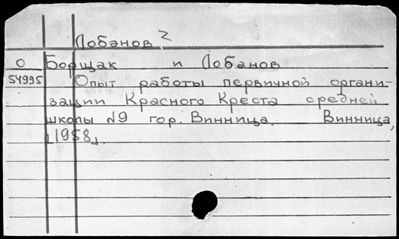 Лобанов 2
О Борщак и Лобанов
54995 Опыт работы первичной органи-
зации Красного Креста средней
школы №9 гор. Винница. Винница,
[1958].